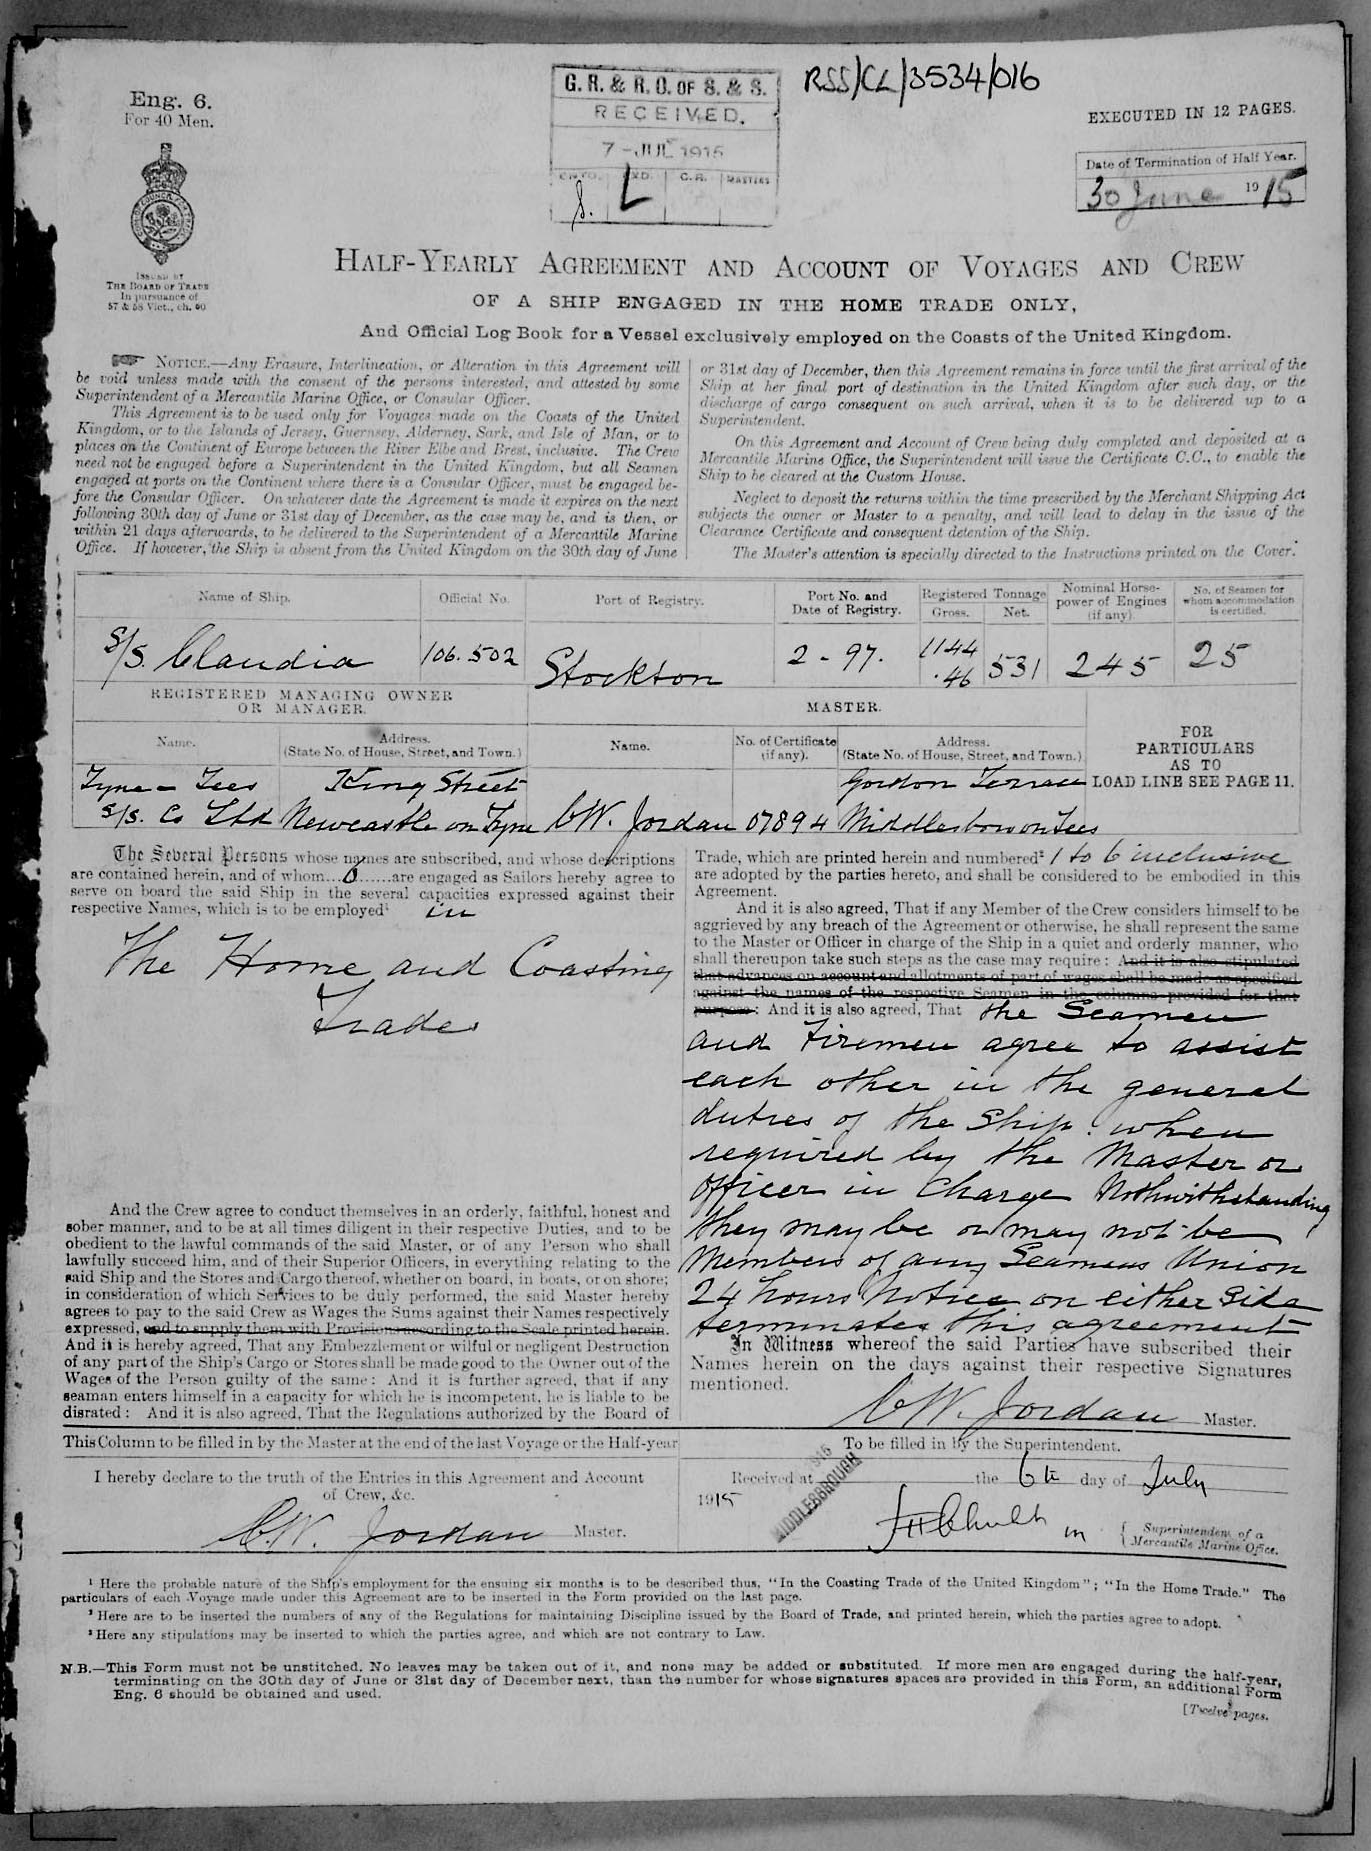 RSS/CL/3534/016
Eng. 6.
For 40 Men.
G. R. & R. O. OF S. & S.
RECEIVED.
7 - JUL 1915
C.R. MASTERS
8. L
EXECUTED IN 12 PAGES.
Date of Termination of Half Year.
30 June 1915
ISSUED BY
THE BOARD OF TRADE
In pursuance of
57 & 58 Vict., ch. 60
HALF-YEARLY AGREEMENT AND ACCOUNT OF VOYAGES AND CREW
OF A SHIP ENGAGED IN THE HOME TRADE ONLY,
And Official Log Book for a Vessel exclusively employed on the Coasts of the United Kingdom.
NOTICE.—Any Erasure, Interlineation, or Alteration in this Agreement will
be void unless made with the consent of the persons interested, and attested by some
Superintendent of a Mercantile Marine Office, or Consular Officer.
This Agreement is to be used only for Voyages made on the Coasts of the United
Kingdom, or to the Islands of Jersey, Guernsey, Alderney, Sark, and Isle of Man, or to
places on the Continent of Europe between the River Elbe and Brest, inclusive. The Crew
need not be engaged before a Superintendent in the United Kingdom, but all Seamen
engaged at ports on the Continent where there is a Consular Officer, must be engaged be-
fore the Consular Officer. On whatever date the Agreement is made it expires on the next
following 30th day of June or 31st day of December, as the case may be, and is then, or
within 21 days afterwards, to be delivered to the Superintendent of a Mercantile Marine
Office. If however, the Ship is absent from the United Kingdom on the 30th day of June
or 31st day of December, then this Agreement remains in force until the first arrival of the
Ship at her final port of destination in the United Kingdom after such day, or the
discharge of cargo consequent on such arrival, when it is to be delivered up to a
Superintendent.
On this Agreement and Account of Crew being duly completed and deposited at a
Mercantile Marine Office, the Superintendent will issue the Certificate C.C., to enable the
Ship to be cleared at the Custom House.
Neglect to deposit the returns within the time prescribed by the Merchant Shipping Act
subjects the owner or Master to a penalty, and will lead to delay in the issue of the
Clearance Certificate and consequent detention of the Ship.
The Master's attention is specially directed to the Instructions printed on the Cover.
Name of Ship. Official No. Port of Registry. Port No. and Date of Registry. Registered Tonnage Gross. Net. Nominal Horse-power of Engines (if any) No. of Seamen for whom accommodation is certified.
S/S. Claudia 106.502 Stockton 2 - 97. 1144 .46 531 245 25
REGISTERED MANAGING OWNER
OR MANAGER.
MASTER.
FOR
PARTICULARS
AS TO
LOAD LINE SEE PAGE 11.
Name. Address. (State No. of House, Street, and Town.) Name. No. of Certificate (if any). Address. (State No. of House, Street, and Town.)
Tyne - Tees King Street Gordon Terrace
S/S. Co Ltd Newcastle on Tyne C.W. Jordan 07894 Middlesboro on Tees
The Several Persons whose names are subscribed, and whose descriptions
are contained herein, and of whom...6......are engaged as Sailors hereby agree to
serve on board the said Ship in the several capacities expressed against their
respective Names, which is to be employed¹ in
The Home and Coasting
Trade
And the Crew agree to conduct themselves in an orderly, faithful, honest and
sober manner, and to be at all times diligent in their respective Duties, and to be
obedient to the lawful commands of the said Master, or of any Person who shall
lawfully succeed him, and of their Superior Officers, in everything relating to the
said Ship and the Stores and Cargo thereof, whether on board, in boats, or on shore;
in consideration of which Services to be duly performed, the said Master hereby
agrees to pay to the said Crew as Wages the Sums against their Names respectively
expressed, and to supply them with Provisions according to the Scale printed herein.
And it is hereby agreed, That any Embezzlement or wilful or negligent Destruction
of any part of the Ship's Cargo or Stores shall be made good to the Owner out of the
Wages of the Person guilty of the same: And it is further agreed, that if any
seaman enters himself in a capacity for which he is incompetent, he is liable to be
disrated: And it is also agreed, That the Regulations authorized by the Board of
Trade, which are printed herein and numbered² 1 to 6 inclusive
are adopted by the parties hereto, and shall be considered to be embodied in this
Agreement.
And it is also agreed, That if any Member of the Crew considers himself to be
aggrieved by any breach of the Agreement or otherwise, he shall represent the same
to the Master or Officer in charge of the Ship in a quiet and orderly manner, who
shall thereupon take such steps as the case may require: And it is also stipulated
that advances on account and allotments of part of wages shall be made as specified
against the names of the respective Seamen in the columns provided for that
purpose: And it is also agreed, That the Seamen
and Firemen agree to assist
each other in the general
duties of the Ship. when
required by the Master or
Officer in Charge Nothwithstanding
they may be or may not be
Members of any Seamens Union
24 hours Notice on either Side
terminates this agreement
In Witness whereof the said Parties have subscribed their
Names herein on the days against their respective Signatures
mentioned.
C.W. Jordan Master.
This Column to be filled in by the Master at the end of the last Voyage or the Half-year
I hereby declare to the truth of the Entries in this Agreement and Account
of Crew, &c.
C.W. Jordan Master.
To be filled in by the Superintendent.
Received at MIDDLESBROUGH the 6th day of July
1915
Superintendent of a
Mercantile Marine Office.
¹ Here the probable nature of the Ship's employment for the ensuing six months is to be described thus, "In the Coasting Trade of the United Kingdom"; "In the Home Trade." The
particulars of each Voyage made under this Agreement are to be inserted in the Form provided on the last page.
² Here are to be inserted the numbers of any of the Regulations for maintaining Discipline issued by the Board of Trade, and printed herein, which the parties agree to adopt.
³ Here any stipulations may be inserted to which the parties agree, and which are not contrary to Law.
N.B.—This Form must not be unstitched. No leaves may be taken out of it, and none may be added or substituted. If more men are engaged during the half-year,
terminating on the 30th day of June or 31st day of December next, than the number for whose signatures spaces are provided in this Form, an additional Form
Eng. 6 should be obtained and used.
[Twelve pages.